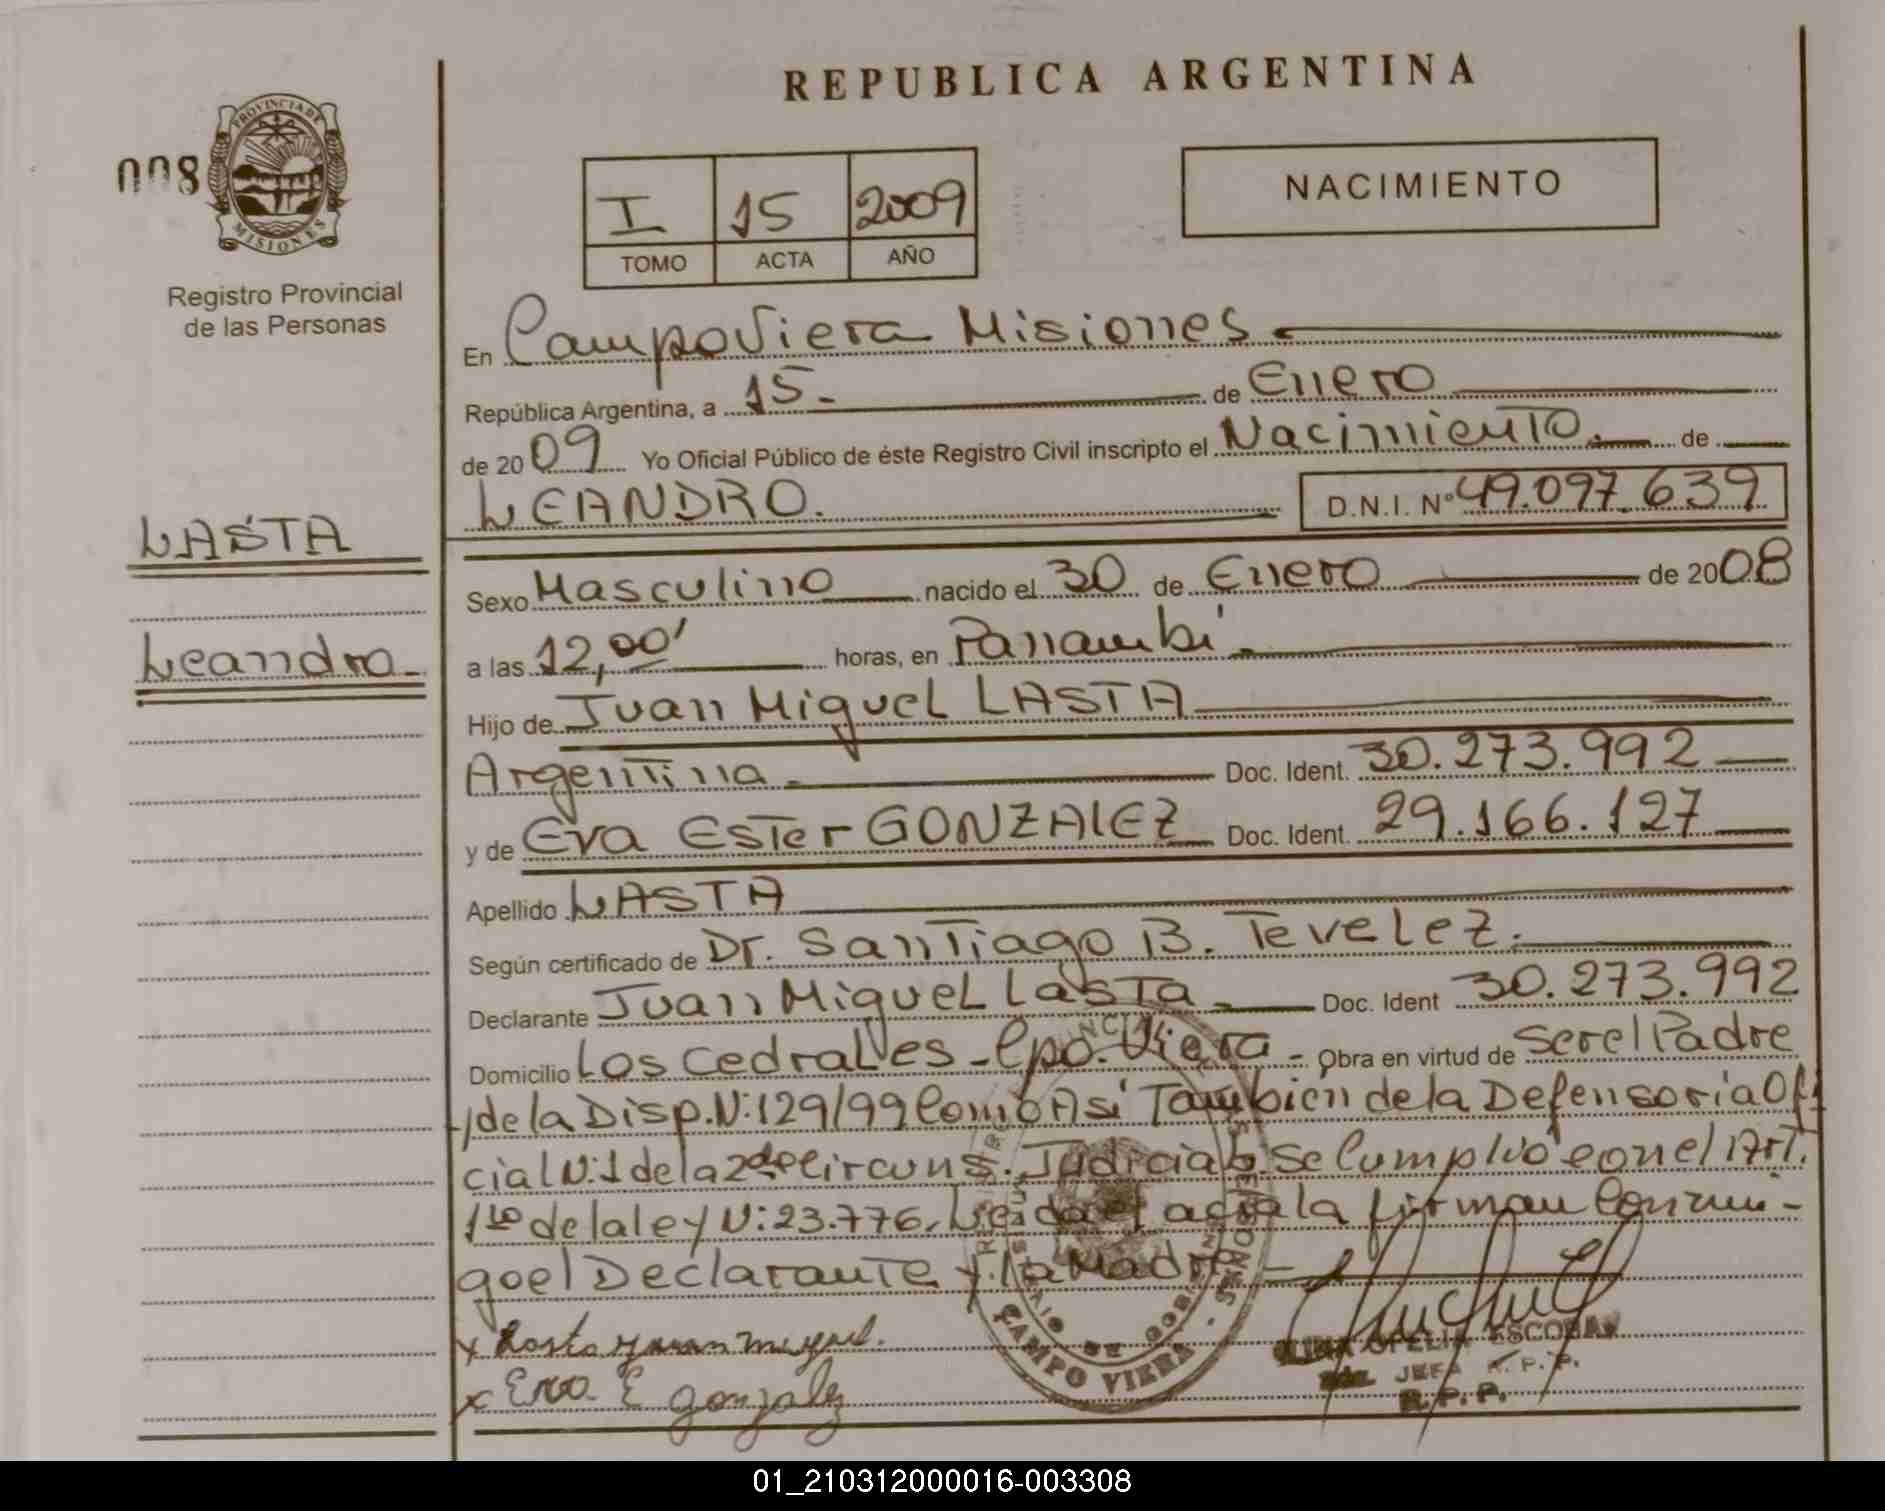 REPUBLICA ARGENTINA
008
PROVINCIA DE
MISIONES
Registro Provincial
de las Personas
I 15 2009
TOMO ACTA AÑO
NACIMIENTO
En Campo Viera Misiones
República Argentina, a 15- de Enero
de 2009 Yo Oficial Público de éste Registro Civil inscripto el Nacimiento. de
LEANDRO. D.N.I. Nº 49.097.639
LASTA
Leandro
Sexo Masculino nacido el 30 de Enero de 2008
a las 12,00' horas, en Panambí
Hijo de Juan Miguel LASTA
Argentina Doc. Ident. 30.273.992
y de Eva Ester GONZALEZ Doc. Ident. 29.166.127
Apellido LASTA
Según certificado de Dr. Santiago B. Tevelez.
Declarante Juan Miguel Lasta Doc. Ident 30.273.992
Domicilio Los Cedrales - Cpo. Viera - Obra en virtud de ser el Padre
de la Disp. N: 129/99 Como Así También de la Defensoria Ofi
cial N: 1 de la 2da Circuns. Judicial. Se Cumplió con el Art.
1ro de la ley N: 23.776. Leida el acta la firman Conmi-
go el Declarante y la Madre
x Lasta Juan Miguel.
x Eva E gonzalez
CAMPO VIERA
OFELIA ESCOBAR
JEFA R.P.P.
R.P.P.
01_210312000016-003308